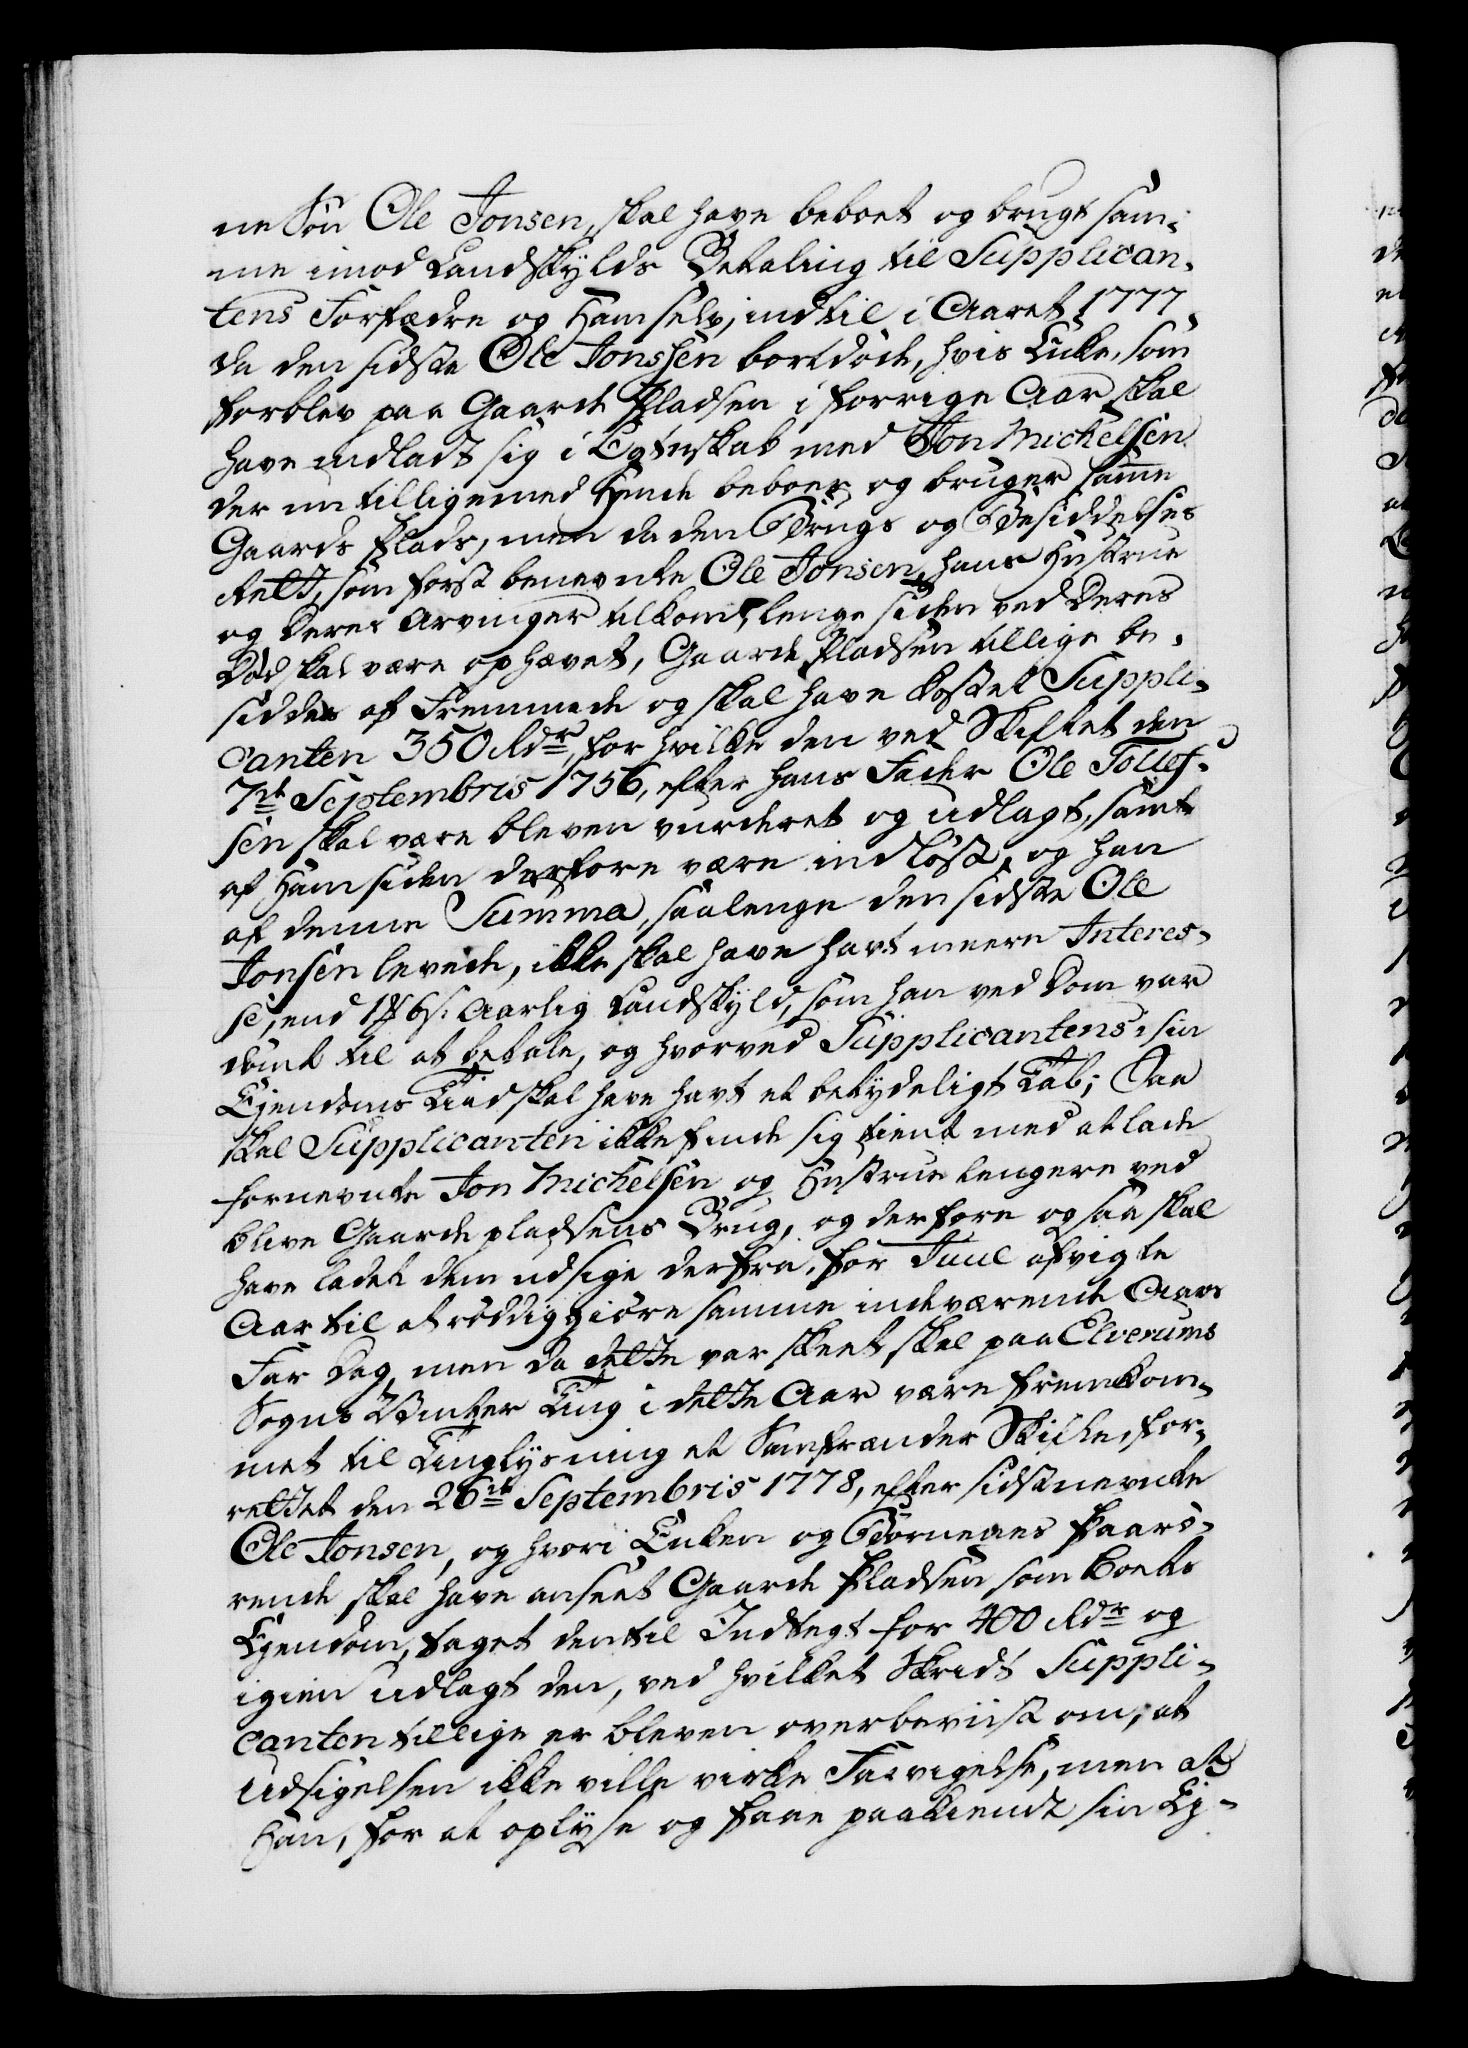 ne Søn Ole Jonsen, skal have beboet og brugt sam-
me imod Landskylds Betaling til Supplican-
tens Forfædre og Ham selv, indtil i Aaret 1777,
da den sidste Ole Jonssen bortdøde, hvis Enke, som
forblev paa Gaarde Pladsen i forrige Aar skal
have indladt sig i Egteskab med Jon Michelsen
der nu tilligemed Hende beboer og bruger samme
Gaards Plads, men da den Brugs og Besiddelses
Rett, som først benevnte Ole Jonsen, hans Hustrue
og Deres Arvinger tilkom, lenge siden ved Deres
Død skal være ophævet, Gaarde Pladsen tillige be-
siddes af Fremmede og skal have kostet Suppli-
canten 350 Rdr, for hvilke den ved Skiftet den
7de Septembris 1756, efter hans Fader Ole Tollef-
sen skal være bleven vurderet og udlagt, samt
af Ham siden derfore være indløst, og han
af denne Summa, saalenge den sidste Ole
Jonsen levede, ikke skal have havt meere Interes-
se, end 1 # 6 s. Aarlig Landskyld, som han ved Dom var
dømt til at betale, og hvorved Supplicantens, sin
Ejendoms Tiid skal have havt et betydeligt Tab; Saa
skal Supplicanten ikke finde sig tient med at lade
fornevnte Jon Michelsen og Hustrue lengere ved
blive Gaarde pladsens Brug, og derfore og saa skal
have ladet dem udsige derfra, før Juul afvigte
Aar til at røddiggiøre samme indeværende Aars
Far Dag, men da dette var skeet skal paa Elverums
Sogns Vinter Ting i dette Aar være fremkom-
met til Tinglysning et Samfrænder Skifte, for-
rettet den 26de Septembris 1778, efter sidstnevnte
Ole Jonsen, og hvori Enken og Børnenes Paarø-
rende skal have anseet Gaarde Pladsen som Boets
Ejendom, taget den til Indtegt for 400 Rdr og
igien udlagt den, ved hvilket Skridt Suppli-
canten tillige er bleven overbeviist om, at
Udsigelsen ikke ville virke Fravigelse, men at
Han, for at oplyse og faae paakiendt sin Ej-